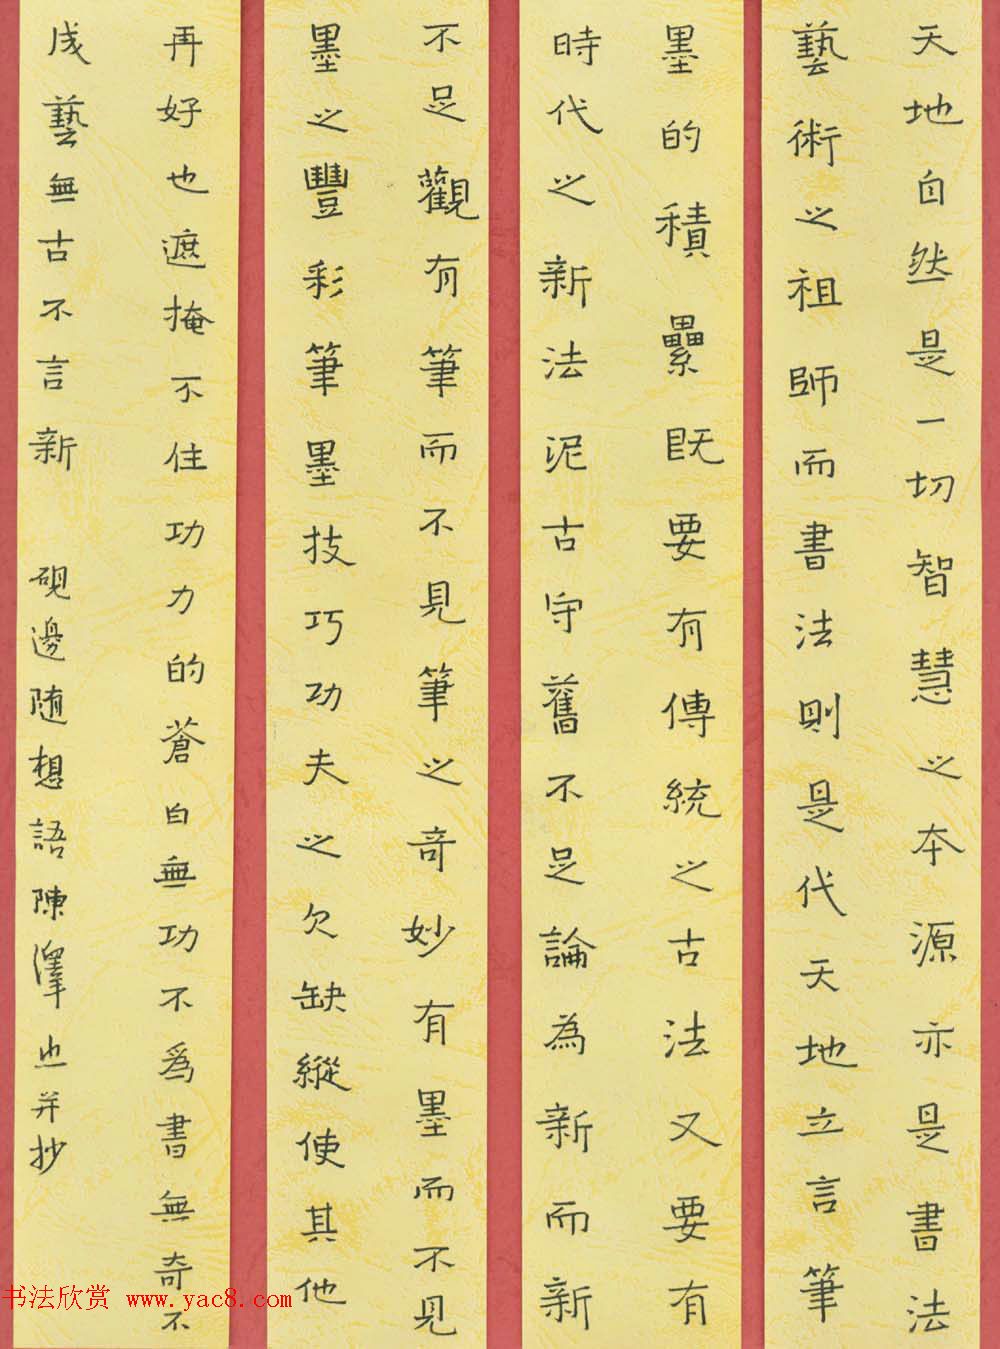 天地自然是一切智慧之本源亦是書法
藝術之祖師而書法則是代天地立言筆
墨的積壘既要有傳統之古法又要有
時代之新法泥古守舊不足論為新而新
不足觀有筆而不見筆之奇妙有墨而不見
墨之豐彩筆墨技巧功夫之欠缺縱使其他
再好也遮掩不住功力的蒼白無功不為書無奇不
成藝無古不言新
硯邊随想語陳澤也并抄
书法欣赏 www.yac8.com